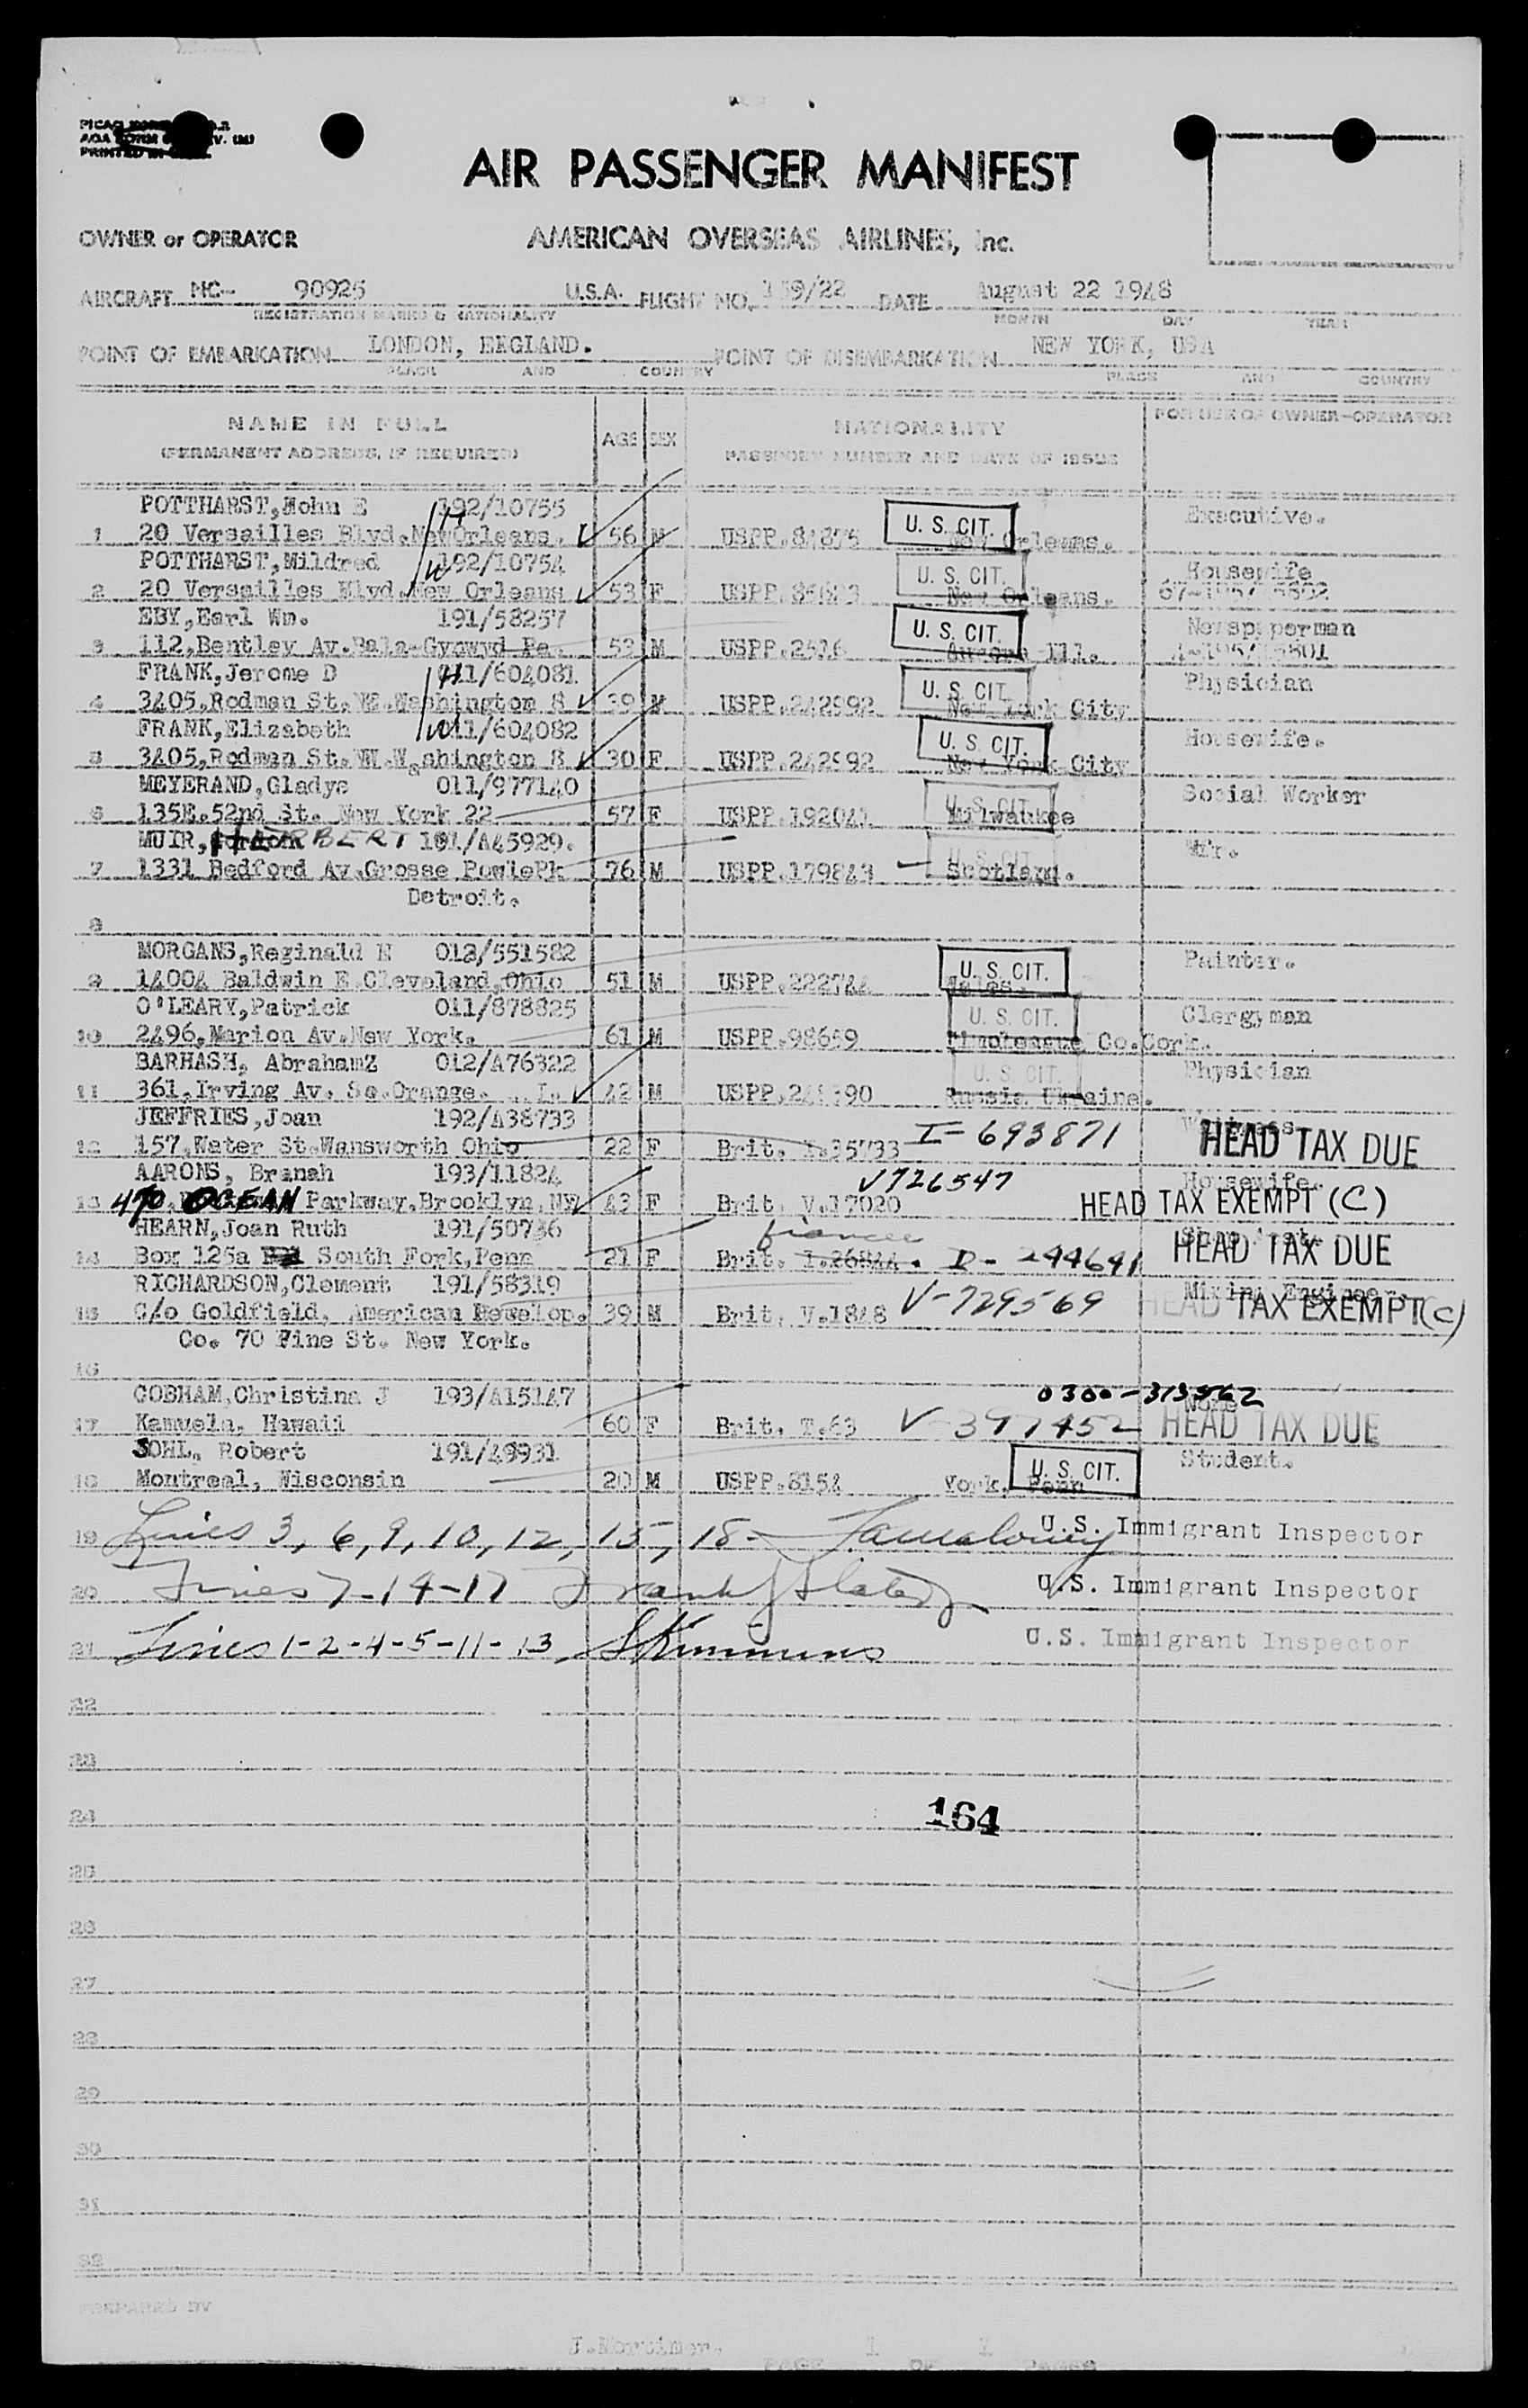 AIR PASSENGER MANIFEST
OWNER or OPERATOR AMERICAN OVERSEAS AIRLINES, Inc.
AIRCRAFT NC- 90925 U.S.A. FLIGHT NO. DATE August 22 1948
REGISTRATION MARKS & NATIONALITY MONTH DAY YEAR
POINT OF EMBARKATION LONDON, ENGLAND. POINT OF DISEMBARKATION NEW YORK, USA
PLACE AND COUNTRY PLACE AND COUNTRY
NAME IN FULL AGE SEX NATIONALITY FOR USE OF OWNER-OPERATOR
(PERMANENT ADDRESS, IF REQUIRED) PASSPORT NUMBER AND DATE OF ISSUE
POTTHARST, John E 192/10755 H U. S. CIT. Executive.
1 20 Versailles Blvd. New Orleans. 56 M USPP. New Orleans.
POTTHARST, Mildred 192/10754 W U. S. CIT. Housewife
2 20 Versailles Blvd. New Orleans 53 F USPP. New Orleans.
EBY, Earl Wm. 191/58257 U. S. CIT. Newspaperman
3 112, Bentley Av. Bala-Cynwyd Pa. 53 M USPP. Aurora Ill.
FRANK, Jerome D 011/604081 H U. S. CIT. Physician
4 3405, Rodman St. NW. Washington 8 39 M USPP. 242992 New York City
FRANK, Elizabeth 011/604082 W U. S. CIT. Housewife.
5 3405, Rodman St. NW. Washington 8 30 F USPP. 242992 New York City
MEYERAND, Gladys 011/977140 U. S. CIT. Social Worker
6 135E. 52nd St. New York 22 57 F USPP. Milwaukee
MUIR, HERBERT 191/A45929. U. S. CIT. Mr.
7 1331 Bedford Av. Grosse PowlePk 76 M USPP. 179843 Scotland.
Detroit.
8
MORGANS, Reginald H 012/551582 U. S. CIT. Painter.
9 14004 Baldwin E. Cleveland, Ohio 51 M USPP. 222744 Wales.
O'LEARY, Patrick 011/878825 U. S. CIT. Clergyman
10 2496, Marion Av. New York. 61 M USPP. 98659 Co. Cork.
BARHASH, AbrahamZ 012/A76322 U. S. CIT. Physician
11 361, Irving Av. So. Orange. 42 M USPP. Russia Ukraine.
JEFFRIES, Joan 192/A38733 I-693871
12 157, Water St. Wansworth Ohio 22 F Brit. HEAD TAX DUE
AARONS, Branah 193/11824 V726547 Housewife.
13 470, OCEAN Parkway, Brooklyn, NY 43 F Brit. V.17020 HEAD TAX EXEMPT (C)
HEARN, Joan Ruth 191/50736 fiancee
14 Box 125a South Fork, Penn 21 F Brit. I.26844. I - 244641 HEAD TAX DUE
RICHARDSON, Clement 191/58319 V-729569 Mining Engineer.
15 C/o Goldfield, American Develop. 39 M Brit. V.1848 HEAD TAX EXEMPT (C)
Co. 70 Pine St. New York.
16
COBHAM, Christina J 193/A15147 0300-313562 None
17 Kamuela, Hawaii 60 F Brit. T.63 V-391452 HEAD TAX DUE
SOHL, Robert 191/49931 U. S. CIT. Student.
18 Montreal, Wisconsin 20 M USPP. 8154 York, Penn
19 Lines 3, 6, 9, 10, 12, 15, 18- U.S. Immigrant Inspector
20 Lines 7-14-17 Frank J U.S. Immigrant Inspector
21 Lines 1-2-4-5-11-13 U.S. Immigrant Inspector
22
23
24 164
25
26
27
28
29
30
31
32
PREPARED BY
J. Mortimer. 1 1
PAGE OF PAGES